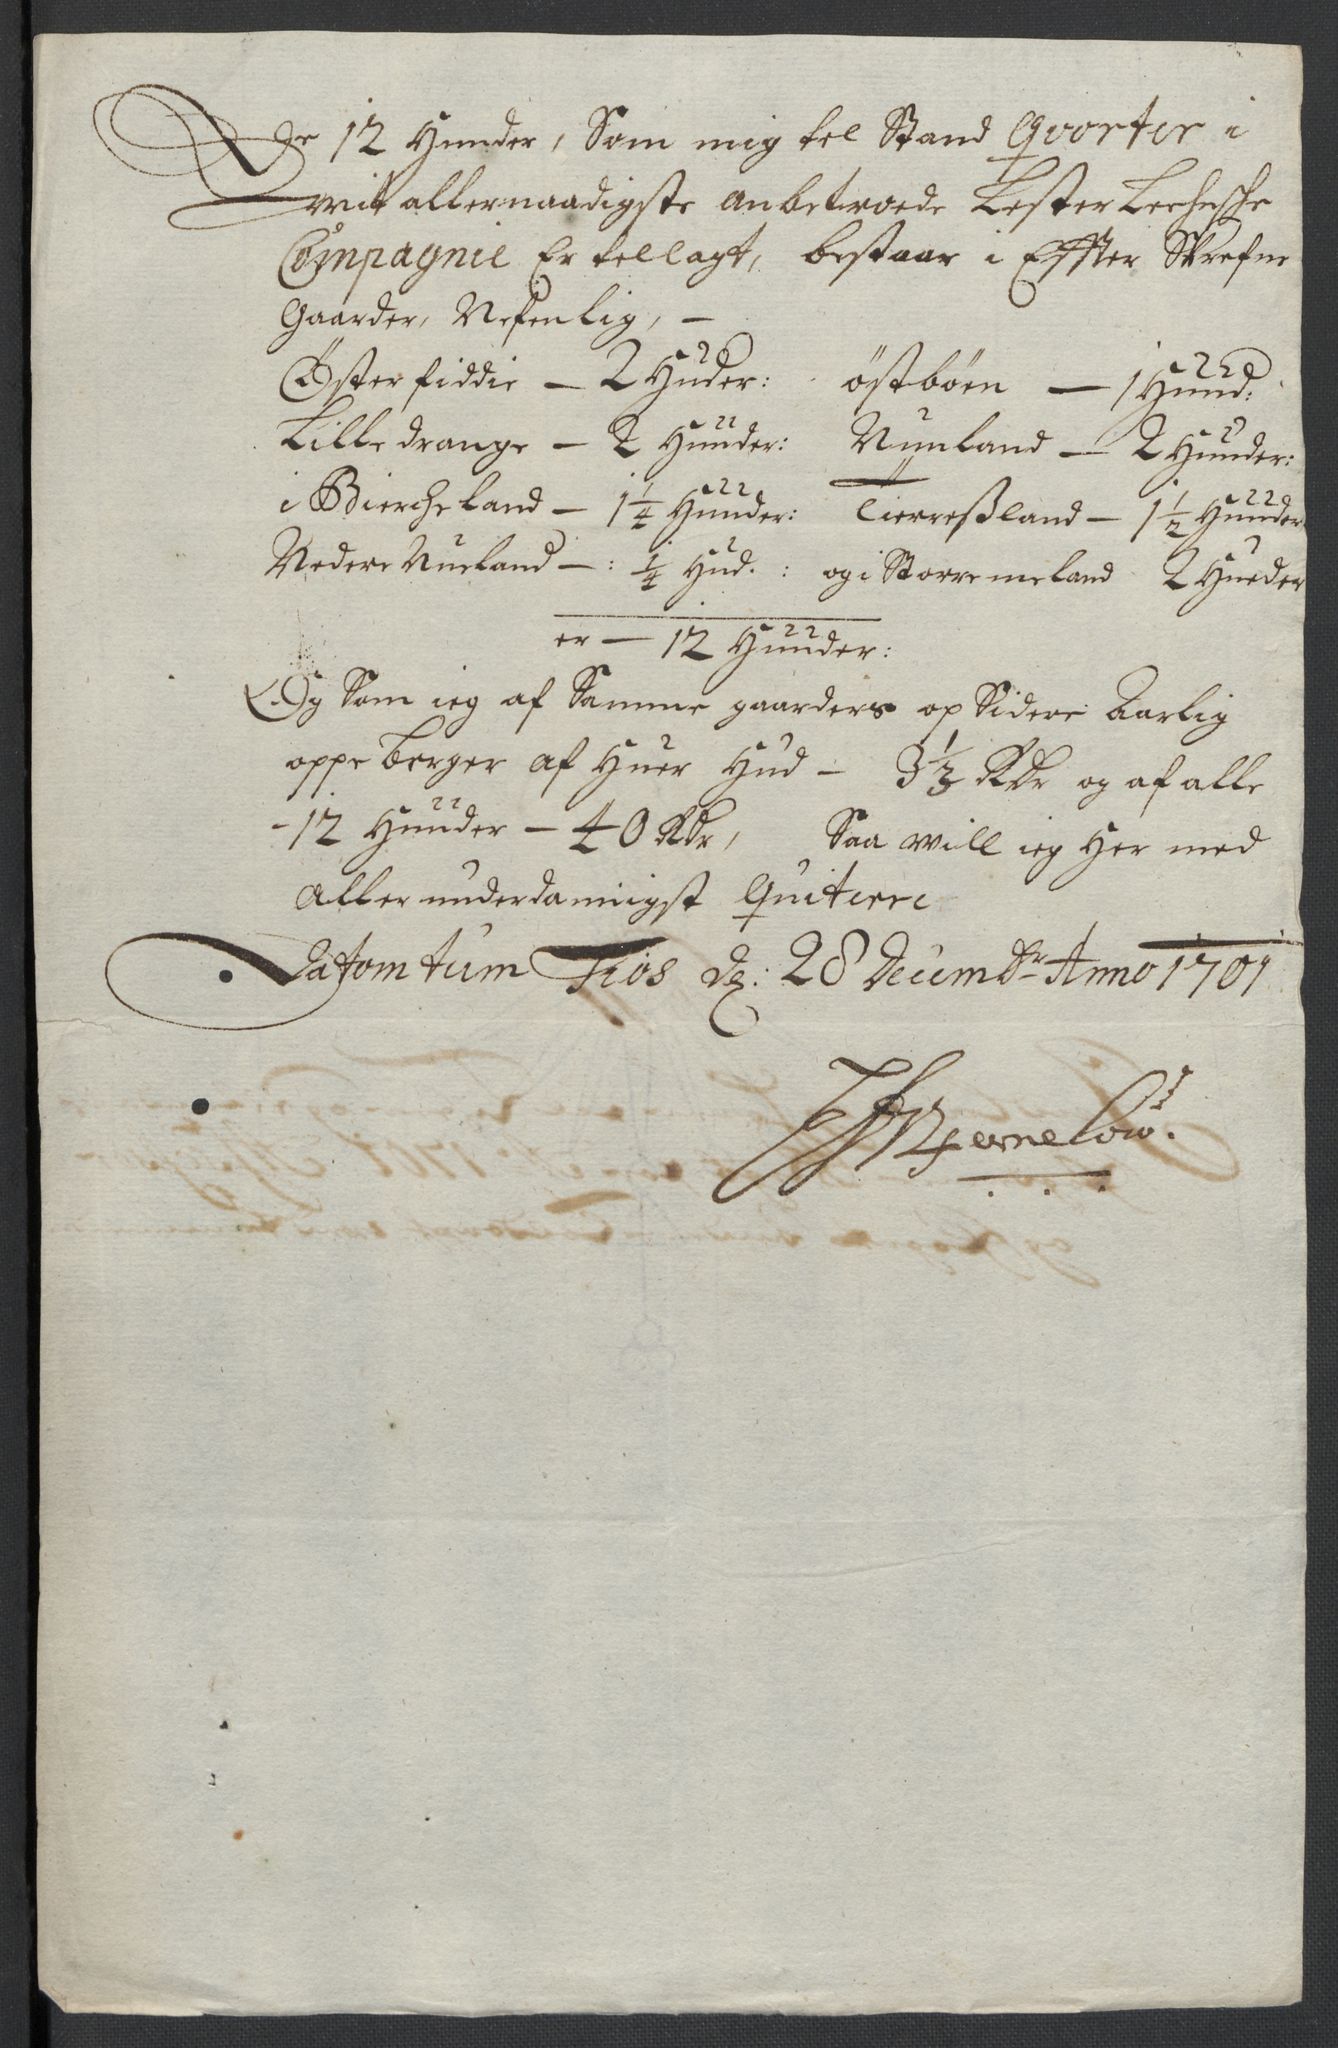 De 12 Hunder, Som mig tel Stand Qvorter i
mit allernaadigste Anbetroede Lester Leehnsche
Compagnie Er tellagt, bestaar i Effter Skrefne
Gaarder, Nefenlig, —
Østerfiddie — 2 Huder: östböen — 1 Hund:
Lille drange — 2 Hunder: Nunland — 2 Hunder:
i Biercheland — 1 1/4 Hunder: Tierreßland — 1 1/2 Hunder
Nedere Nueland — : 1/4 Hud. : og i Storremeland 2 Hueder
er — 12 Hunder:
Og Som ieg af Samme gaarders opSidere Aarlig
oppeberger af Huer Hud — 3 1/3 Rdr og af alle
- 12 Hunder — 40 Rdr, Saa will ieg Her med
Allerunderdannigst Quitere
Datom tum Fiös d: 28 Decembr Anno 1701